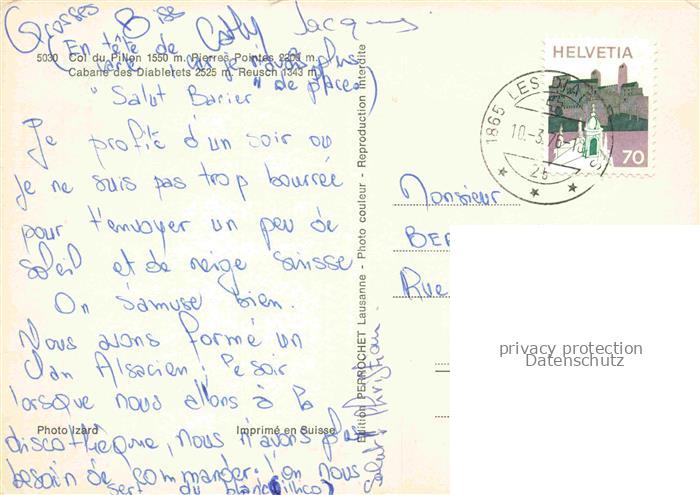 Grosses Biss Cathy Jacques
(En tête de
carte car je n'avais plus
de place)
5030 Col du Pillon 1550 m. Pierres Pointes 2209 m.
Cabane des Diablerets 2525 m. Reusch 1343 m.
"Salut Barier"
Je profite d'un soir où
je ne suis pas trop bourrée
pour t'envoyer un peu de
soleil et de neige suisse
On s'amuse bien.
Nous avons formé un
clan Alsacien ; le soir
lorsque nous allons à la
discothèque, nous n'avons plus
besoin de commander. l'on nous
sert du blanc
Photo Izard
Imprimé en Suisse
Edition PERROCHET Lausanne - Photo couleur - Reproduction interdite
Salut Christian
HELVETIA
70
1865 LES
10.-3.76-18
Monsieur
BER
Rue
privacy protection
Datenschutz